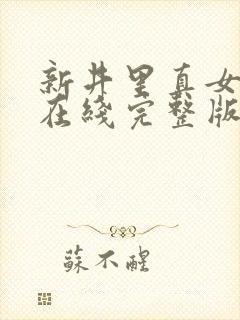 新井里真女
在綫完整版
蘇不醒